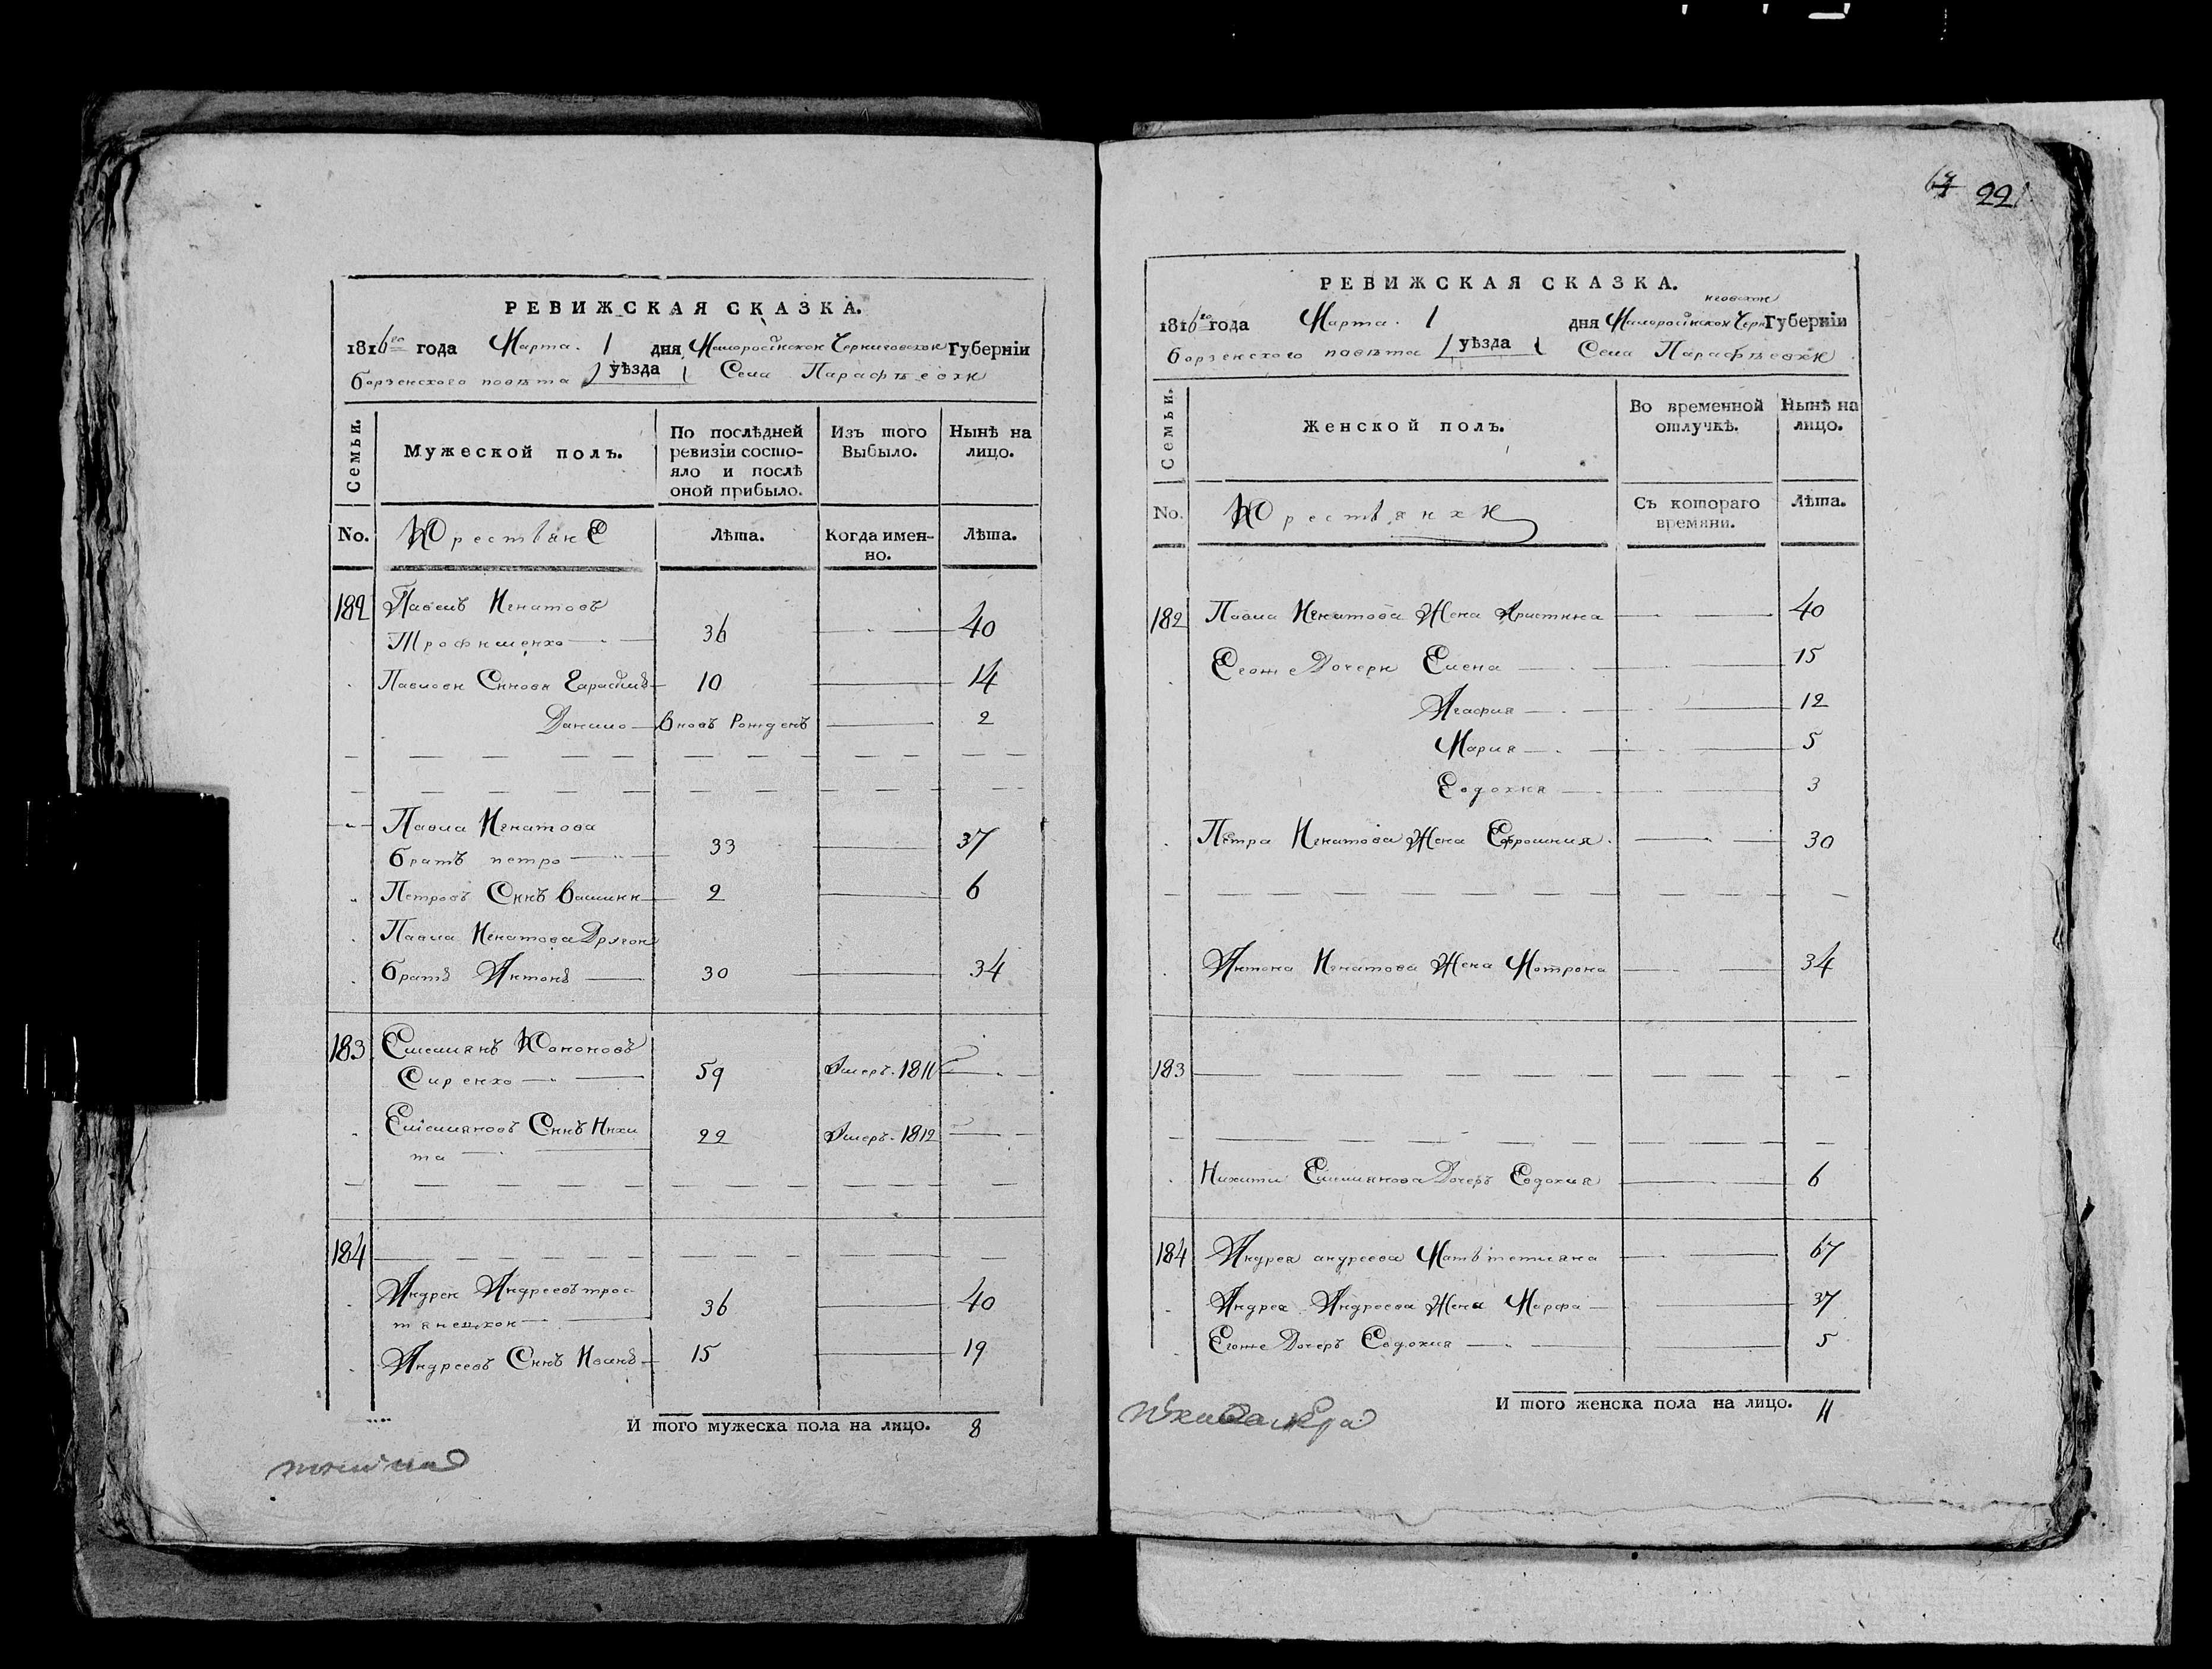 РЕВИЖСКАЯ СКАЗКА.
1816го года Марта. 1 дня Малоросійской Черниговской Губерніи
борзенского повѣта уѣзда Села Парафѣевки
Семьи.
Мужеской полъ.
По послѣдней
ревизіи состо-
яло и послѣ
оной прибыло.
Изъ того
Выбыло.
Нынѣ на
лицо.
No.
Крестьяне
Лѣта.
Когда имен-
но.
Лѣта.
182 Павелъ Игнатовъ
Трофименко 36 40
Павловы Сыновя Гарасимъ 10 14
Данило вновь Рожденъ 2
Павла Игнатова
братъ петро 33 37
Петровъ Сынъ василий 2 6
Павла Игнатова Другой
братъ Антонъ 30 34
183 Емелиянъ Кононовъ
Сиренко 59 Умеръ. 1811
Емелияновъ Сынъ Ники
та 22 Умеръ. 1812
184
Андрей Андреевъ трос-
тянецкой 36 40
Андреевъ Сынъ Иванъ 15 19
И того мужеска пола на лицо. 8
64 221
РЕВИЖСКАЯ СКАЗКА.
иговской
1816го года Марта. 1 дня Малоросійской Черн Губерніи
борзенского повѣта уѣзда Села Парафѣевки
Семьи.
Женской полъ.
Во временной
отлучкѣ.
Нынѣ на
лицо.
No.
Крестьянки
Съ котораго
времяни.
Лѣта.
182 Павла Игнатова Жена Христина 40
Егоже Дочери Елена 15
Агафия 12
Мария 5
Евдокия 3
Петра Игнатова Жена Ефросиния 30
Антона Игнатова Жена Мотрона 34
183
Никити Емелиянова Дочеръ Евдокия 6
184 Андрея андреева Мать тетияна 67
Андрея Андреева Жена Марфа 37
Егоже Дочеръ Евдокия 5
И того женска пола на лицо. 11